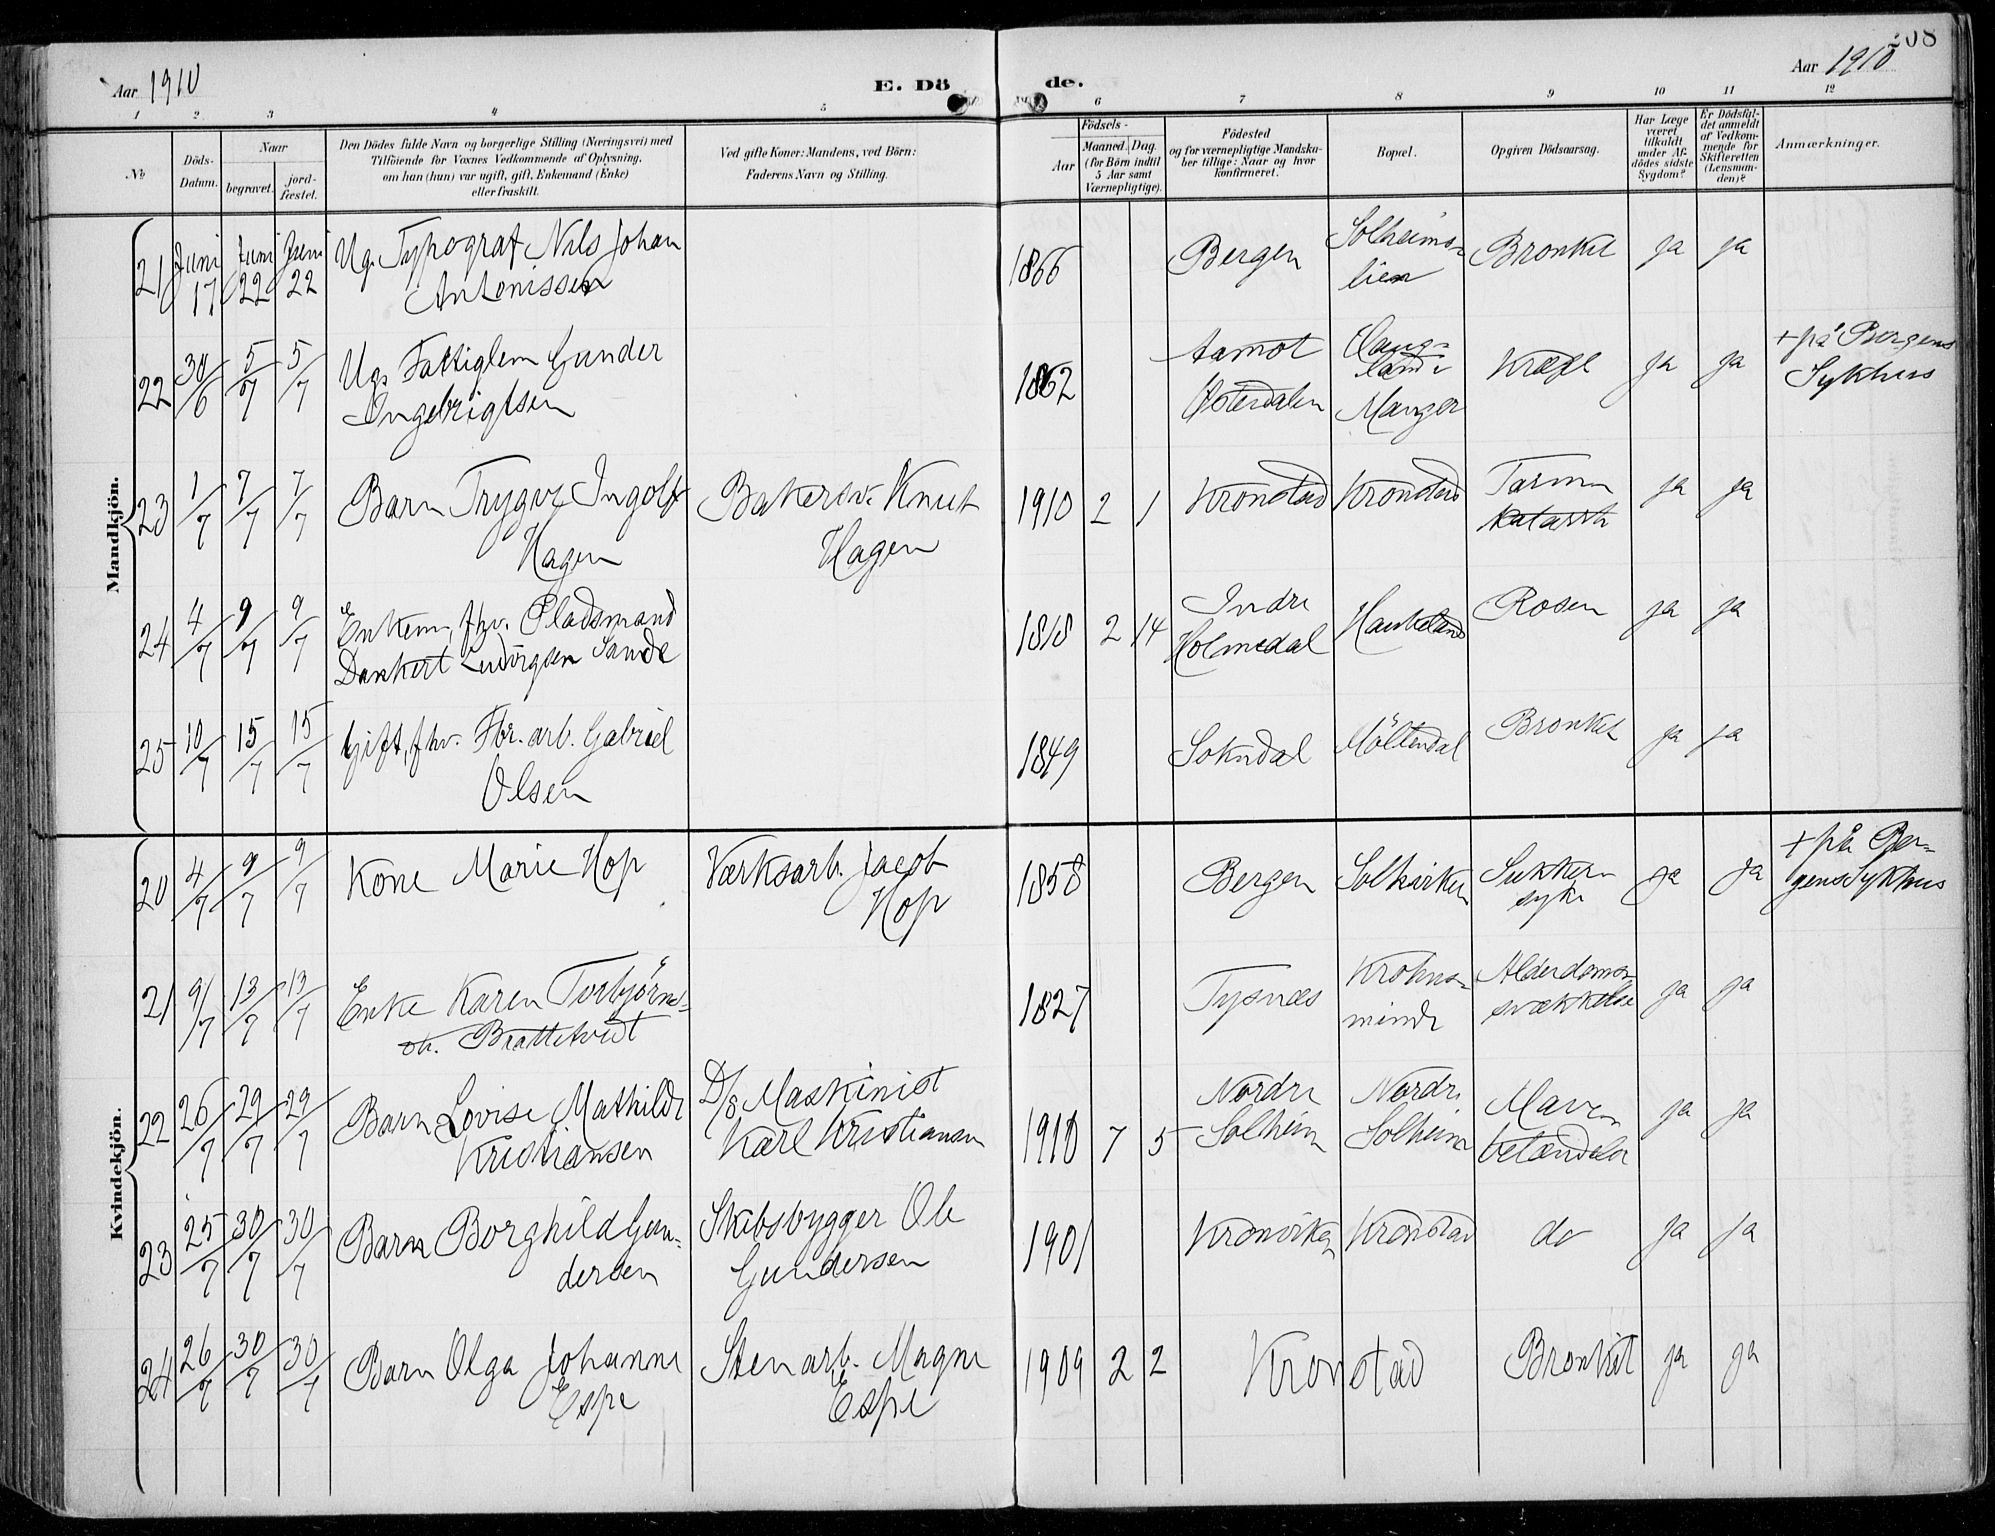 208
Aar 1910
E. Dö
de.
Aar 1910
1 2 3 4 5 6 7 8 9 10 11 12
No
Döds-
Datum.
Naar
begravet.
jord-
fæstet.
Den Dödes fulde Navn og borgerlige Stilling (Næringsvei) med
Tilföiende for Voxnes Vedkommende af Oplysning,
om han (hun) var ugift, gift, Enkemand (Enke)
eller fraskilt.
Ved gifte Koner: Mandens, ved Börn:
Faderens Navn og Stilling.
Födsels-
Aar
Maaned. Dag.
(for Börn indtil
5 Aar samt
Værnepligtige).
Födested
og for værnepligtige Mandska-
ber tillige: Naar og hvor
konfirmeret.
Bopæl.
Opgiven Dödsaarsag.
Har Læge
været
tilkaldt
under Af-
dödes sidste
Sygdom?
Er Dödsfal-
det anmeldt
af Vedkom-
mende for
Skifteretten
(Lensman-
den)?
Anmærkninger.
Mandkjön.
21 Juni 17 Juni 22 Juni 22 Ug. Typograf Nils Johan
Antenissen
1866 Bergen Solheims-
lien
Bronkit ja ja
22 30/6 5/7 5/7 Ug. Fattiglem Gunder
Ingebrigtsen
1862 Aamot
Østerdalen
Manger
Kræft ja ja + på Bergens
Sykhus
23 1/7 7/7 7/7 Barn Trygve Ingolf
Hagen
Bakersv. Knut
Hagen
1910 2 1 Kronstad Kronstad Tarm
katarrh
ja ja
24 4/7 9/7 9/7 Enkem, fhv. Pladsmand
Dankert Ludvigsen Sande
1818 2 14 Indre
Holmedal
Haukeland Rosen ja ja
25 10/7 15/7 15/7 Gift, fhv. Fbr. arb. Gabriel
Olsen
1849 Sokndal Möllendal Bronkit ja ja
Kvindekjön.
20 4/7 9/7 9/7 Kone Marie Hop Værksarb. Jacob
Hop
1858 Bergen Solkirken Sukker-
syke
ja ja + på Ber-
gens Sykhus
21 9/7 13/7 13/7 Enke Karen Torbjörns-
dtr. Brattetveit
1827 Tysnes Krohns-
minde
Alderdoms-
svækkelse
ja ja
22 26/7 29/7 29/7 Barn Lovise Mathilde
Kristiansen
D/s Maskinist
Karl Kristiansen
1910 7 5 Nordre
Solheim
Nordre
Solheim
Mave
betændelse
ja ja
23 25/7 30/7 30/7 Barn Borghild Gun-
dersen
Skibsbygger Ole
Gundersen
1901 Kronviken Kronstad do ja ja
24 26/7 30/7 30/7 Barn Olga Johanne
Espe
Stenarb. Magne
Espe
1909 2 2 Kronstad Bronkit ja ja